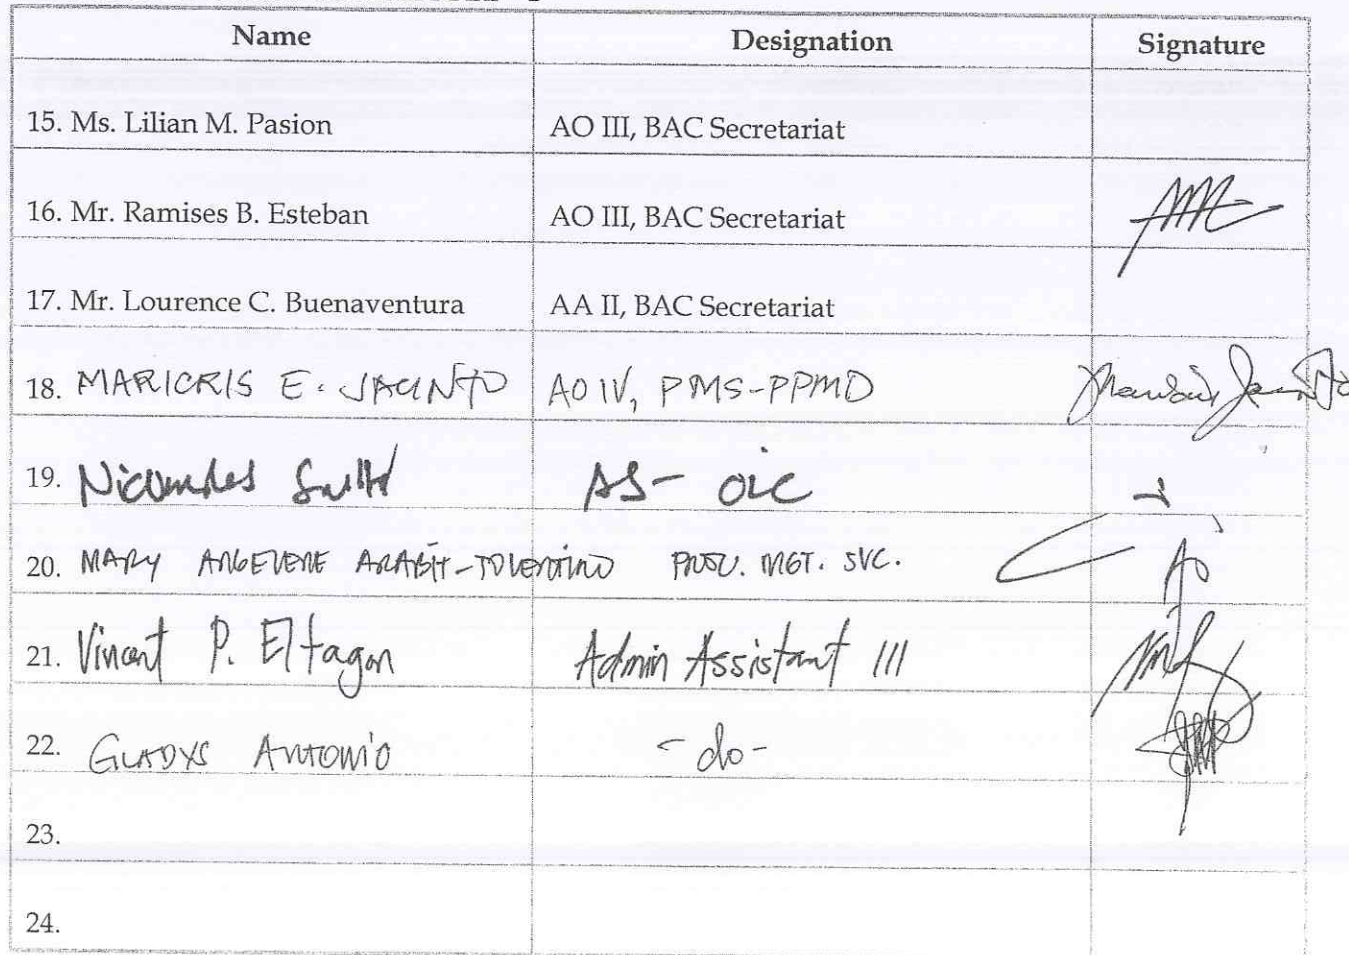 Name Designation Signature
15. Ms. Lilian M. Pasion AO III, BAC Secretariat
16. Mr. Ramises B. Esteban AO III, BAC Secretariat
17. Mr. Lourence C. Buenaventura AA II, BAC Secretariat
18. MARICRIS E. JACINTO AO IV, PMS-PPMD
19. AS- OIC
20. MARY ARABIT-TOLENTINO MGT. SVC.
21. Vincent P. Eltagon Admin Assistant III
22. GLADYS ANTONIO -do-
23.
24.